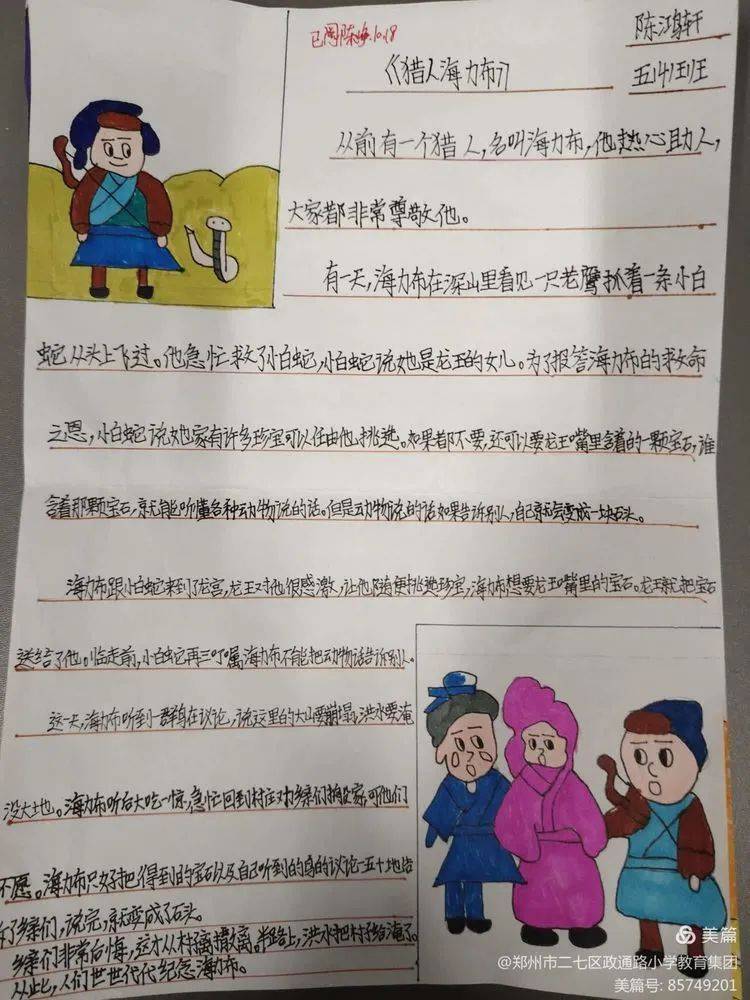 已阅陈 10.18
陈鸿轩
《猎人海力布》
五(4)班
从前有一个猎人,名叫海力布,他热心助人,
大家都非常尊敬他。
有一天,海力布在深山里看见一只老鹰抓着一条小白
蛇从头上飞过。他急忙救了小白蛇,小白蛇说她是龙王的女儿。为了报答海力布的救命
之恩,小白蛇说她家有许多珍宝可以任由他挑选。如果都不要,还可以要龙王嘴里含着的一颗宝石,谁
含着那颗宝石,就能听懂各种动物说的话。但是动物说的话如果告诉别人,自己就会变成一块石头。
海力布跟小白蛇来到了龙宫,龙王对他很感激,让他随便挑选珍宝,海力布想要龙王嘴里的宝石。龙王就把宝石
送给了他。临走前,小白蛇再三叮嘱海力布不能把动物话告诉别人。
这一天,海力布听到一群鸟在议论,说这里的大山要崩塌,洪水要淹
没大地。海力布听后大吃一惊,急忙回到村庄对乡亲们搬家,可他们
不愿。海力布只好把得到的宝石以及自己听到的鸟的议论一五十地告
乡亲们,说完,就变成了石头。
乡亲们非常后悔,这才从村离撤离。半路上,洪水把村子给淹了。
从此,人们世世代代纪念海力布。
美篇
@郑州市二七区政通路小学教育集团
美篇号: 85749201